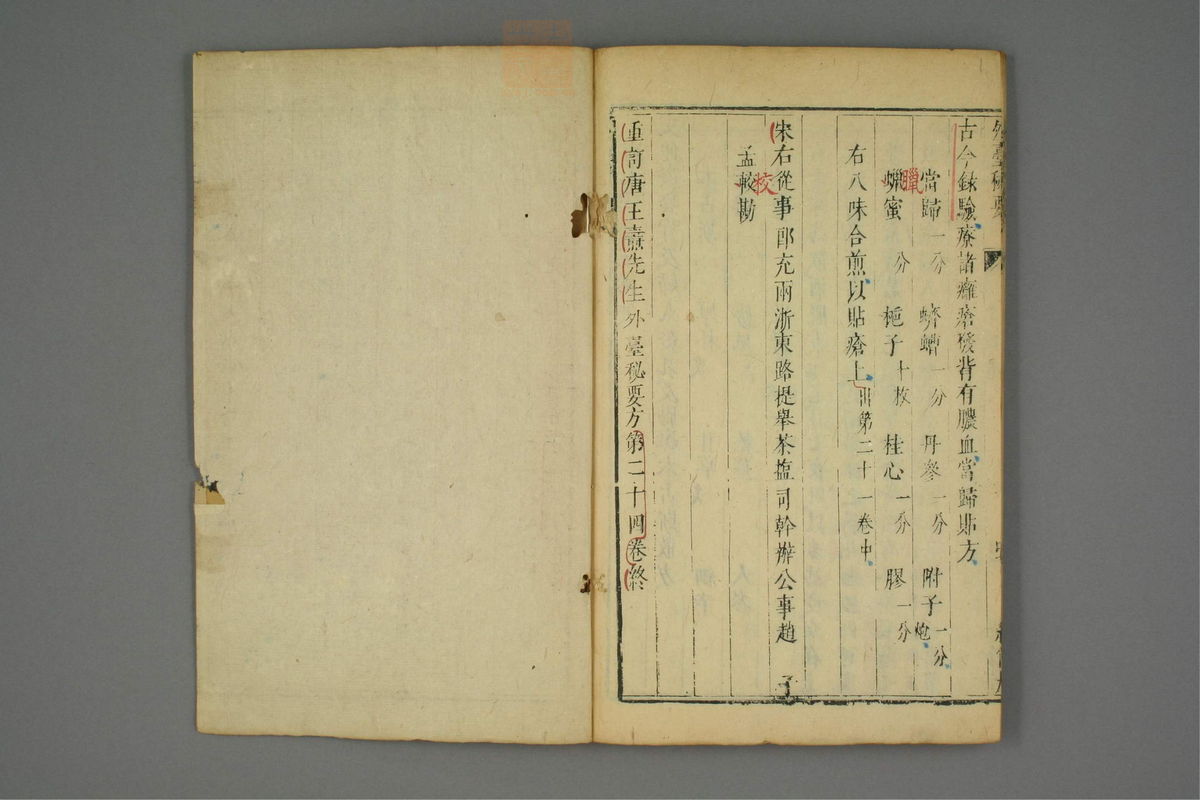 外臺秘要
古今録驗療諸癰瘡發背有膿血當歸貼方
當歸一分 蠐螬一分 丹參一分 附子一分炮
臘
蠟蜜一分 梔子十枚 桂心一分 膠一分
右八味合煎以貼瘡上出第二十一卷中
宋右從事郎充兩浙東路提舉茶塩司幹辦公事趙 子
校
孟較勘
重訂唐王燾先生外臺秘要方第二十四卷終